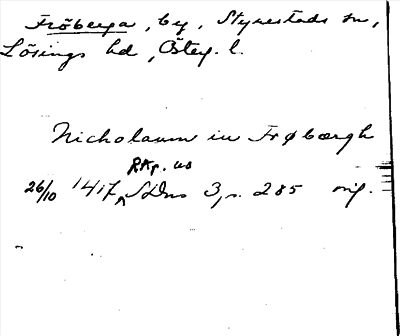 Fröberga, by, Styrestads sn,
Lösings hd, Östg. l.
Nicholaum in Frøbærgh
RAp. us
26/10 1417 SDns 3, s. 285 orig.